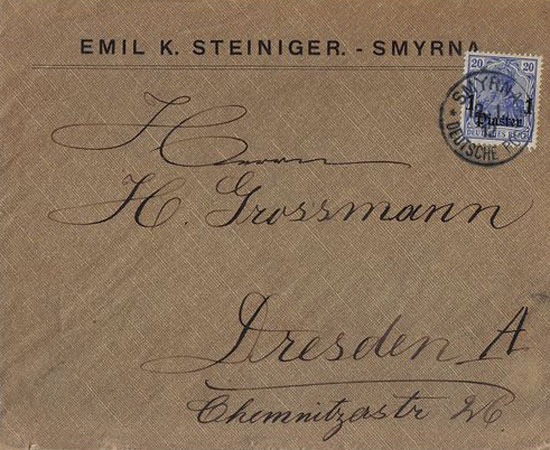 EMIL K. STEINIGER. - SMYRNA
20 20
1 Piaster 1
DEUTSCHES REICH
SMYRNA
DEUTSCHE POST
Herrn
H. Grossmann
Dresden A
Chemnitzastr 26